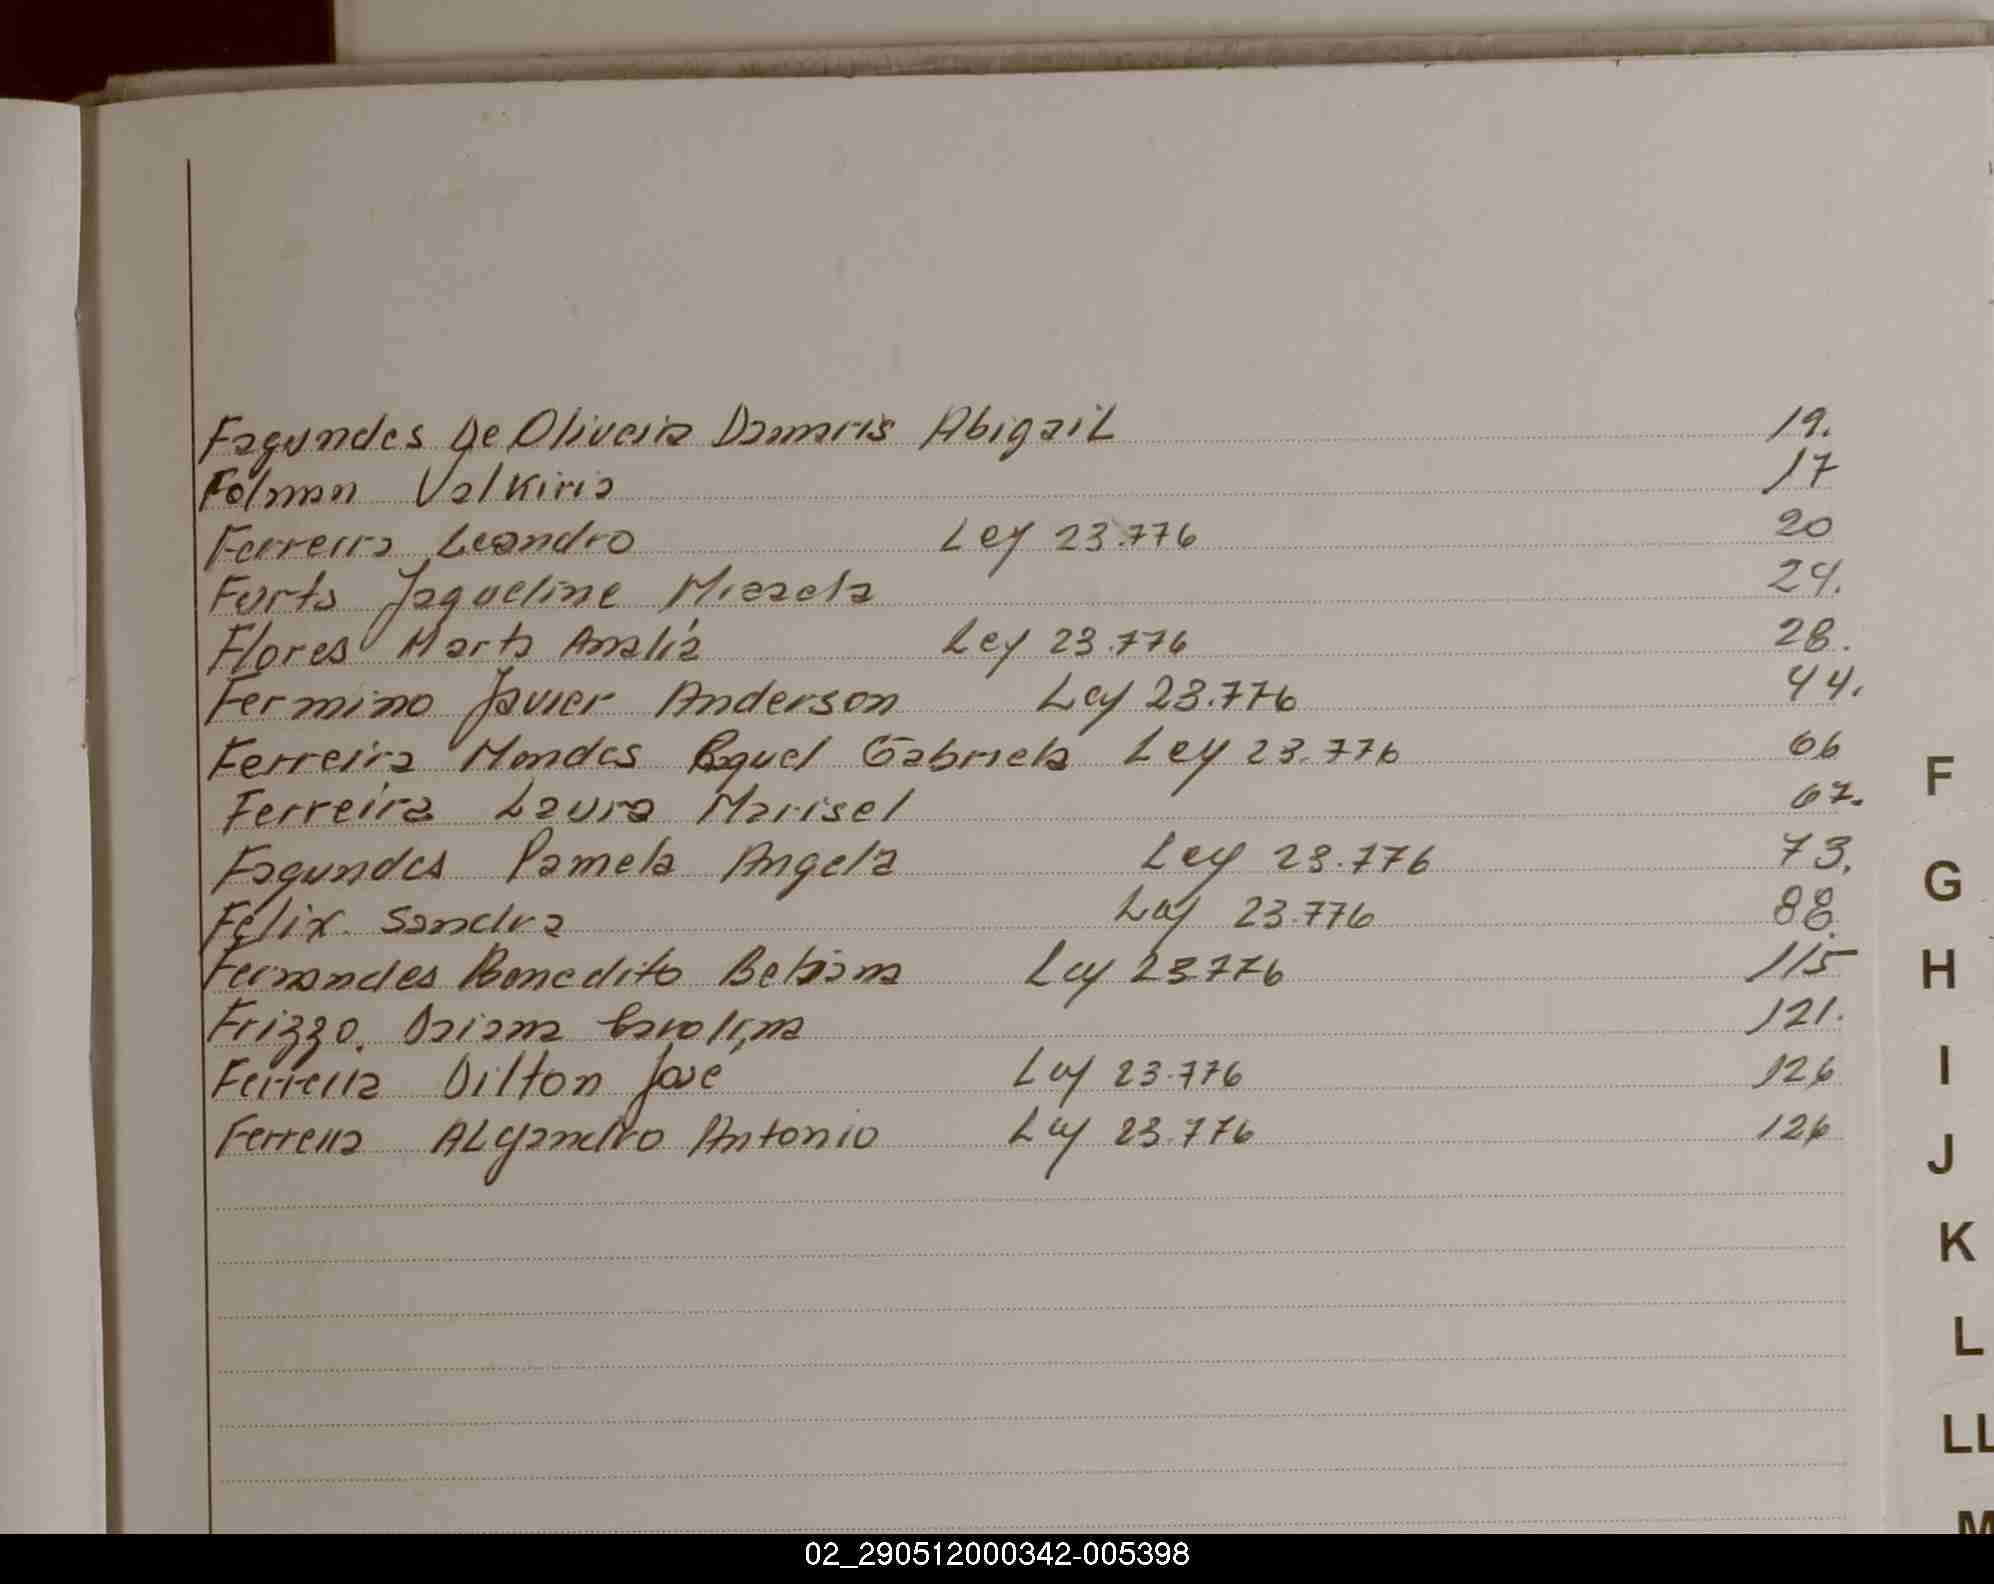 Fagundes De Oliveira Damaris Abigail 19.
Folman Valkiria 17
Ferreira Leandro Ley 23.776 20
Furts Jaqueline Micaela 24.
Flores Marta Analía Ley 23.776 28.
Fermino Javier Anderson Ley 23.776 44.
Ferreira Mendes Raquel Gabriela Ley 23.776 66
Ferreira Laura Marisel 67.
Fagundes Pamela Angela Ley 23.776 73.
Felix Sandra Ley 23.776 88.
Fernandes Benedito Betiana Ley 23776 115
Frizzo. Daiana Carolina 121.
Ferreira Dilton Jose Ley 23.776 126
Ferreira ALejandro Antonio Ley 23.776 126
F
G
H
I
J
K
L
LL
M
02_290512000342-005398